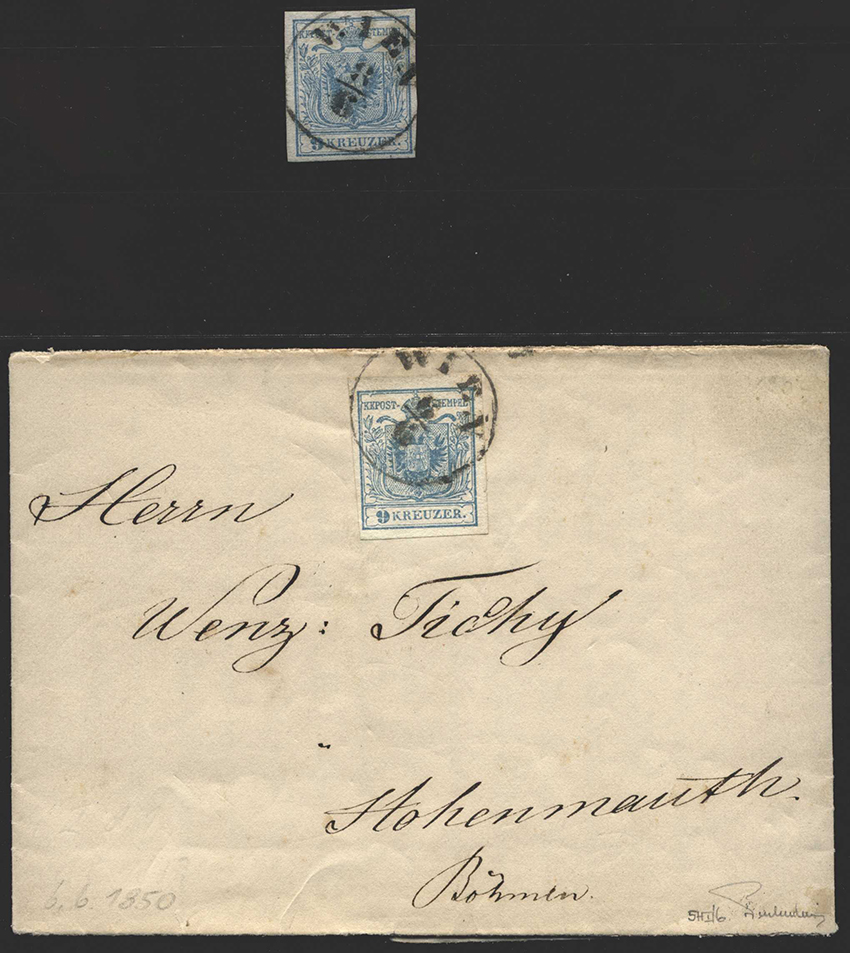 KKPOST- STEMPEL
WIEN
9 KREUZER.
WIEN
KKPOST- STEMPEL
9 KREUZER.
Herrn
Wenz: Tichy
Hohenmauth.
Böhmen.
6. 6. 1850